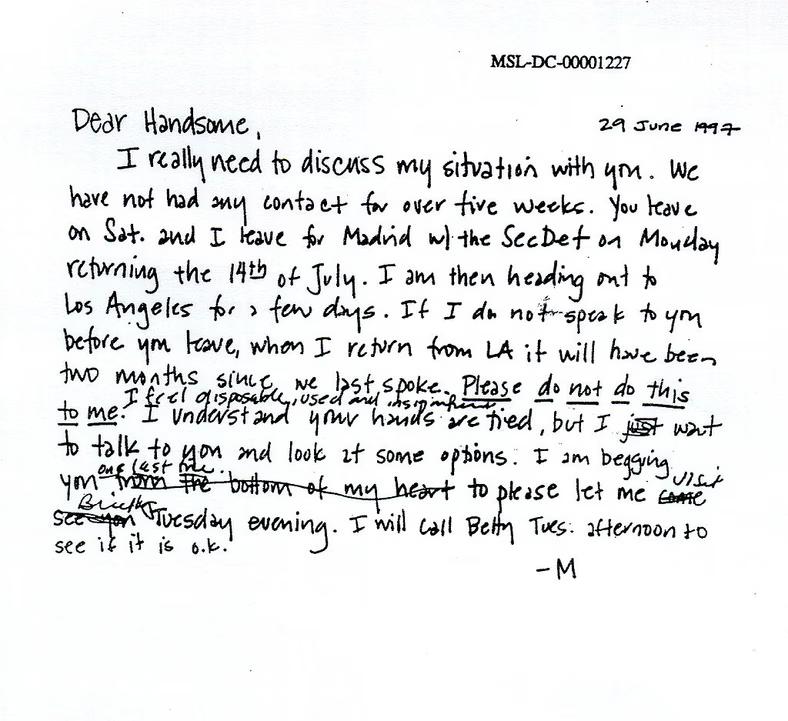 MSL-DC-00001227
Dear Handsome,
29 June 1997
I really need to discuss my situation with you. We
have not had any contact for over five weeks. You leave
on Sat. and I leave for Madrid w/ the SecDef on Monday
returning the 14th of July. I am then heading out to
Los Angeles for a few days. If I do not speak to you
before you leave, when I return from LA it will have been
two months since we last spoke. Please do not do this
I feel disposable, used and insignificant
to me. I understand your hands are tied, but I just want
to talk to you and look at some options. I am begging
one last time visit
you from the bottom of my heart to please let me come
Briefly
see you Tuesday evening. I will call Betty Tues. afternoon to
see if it is o.k.
-M